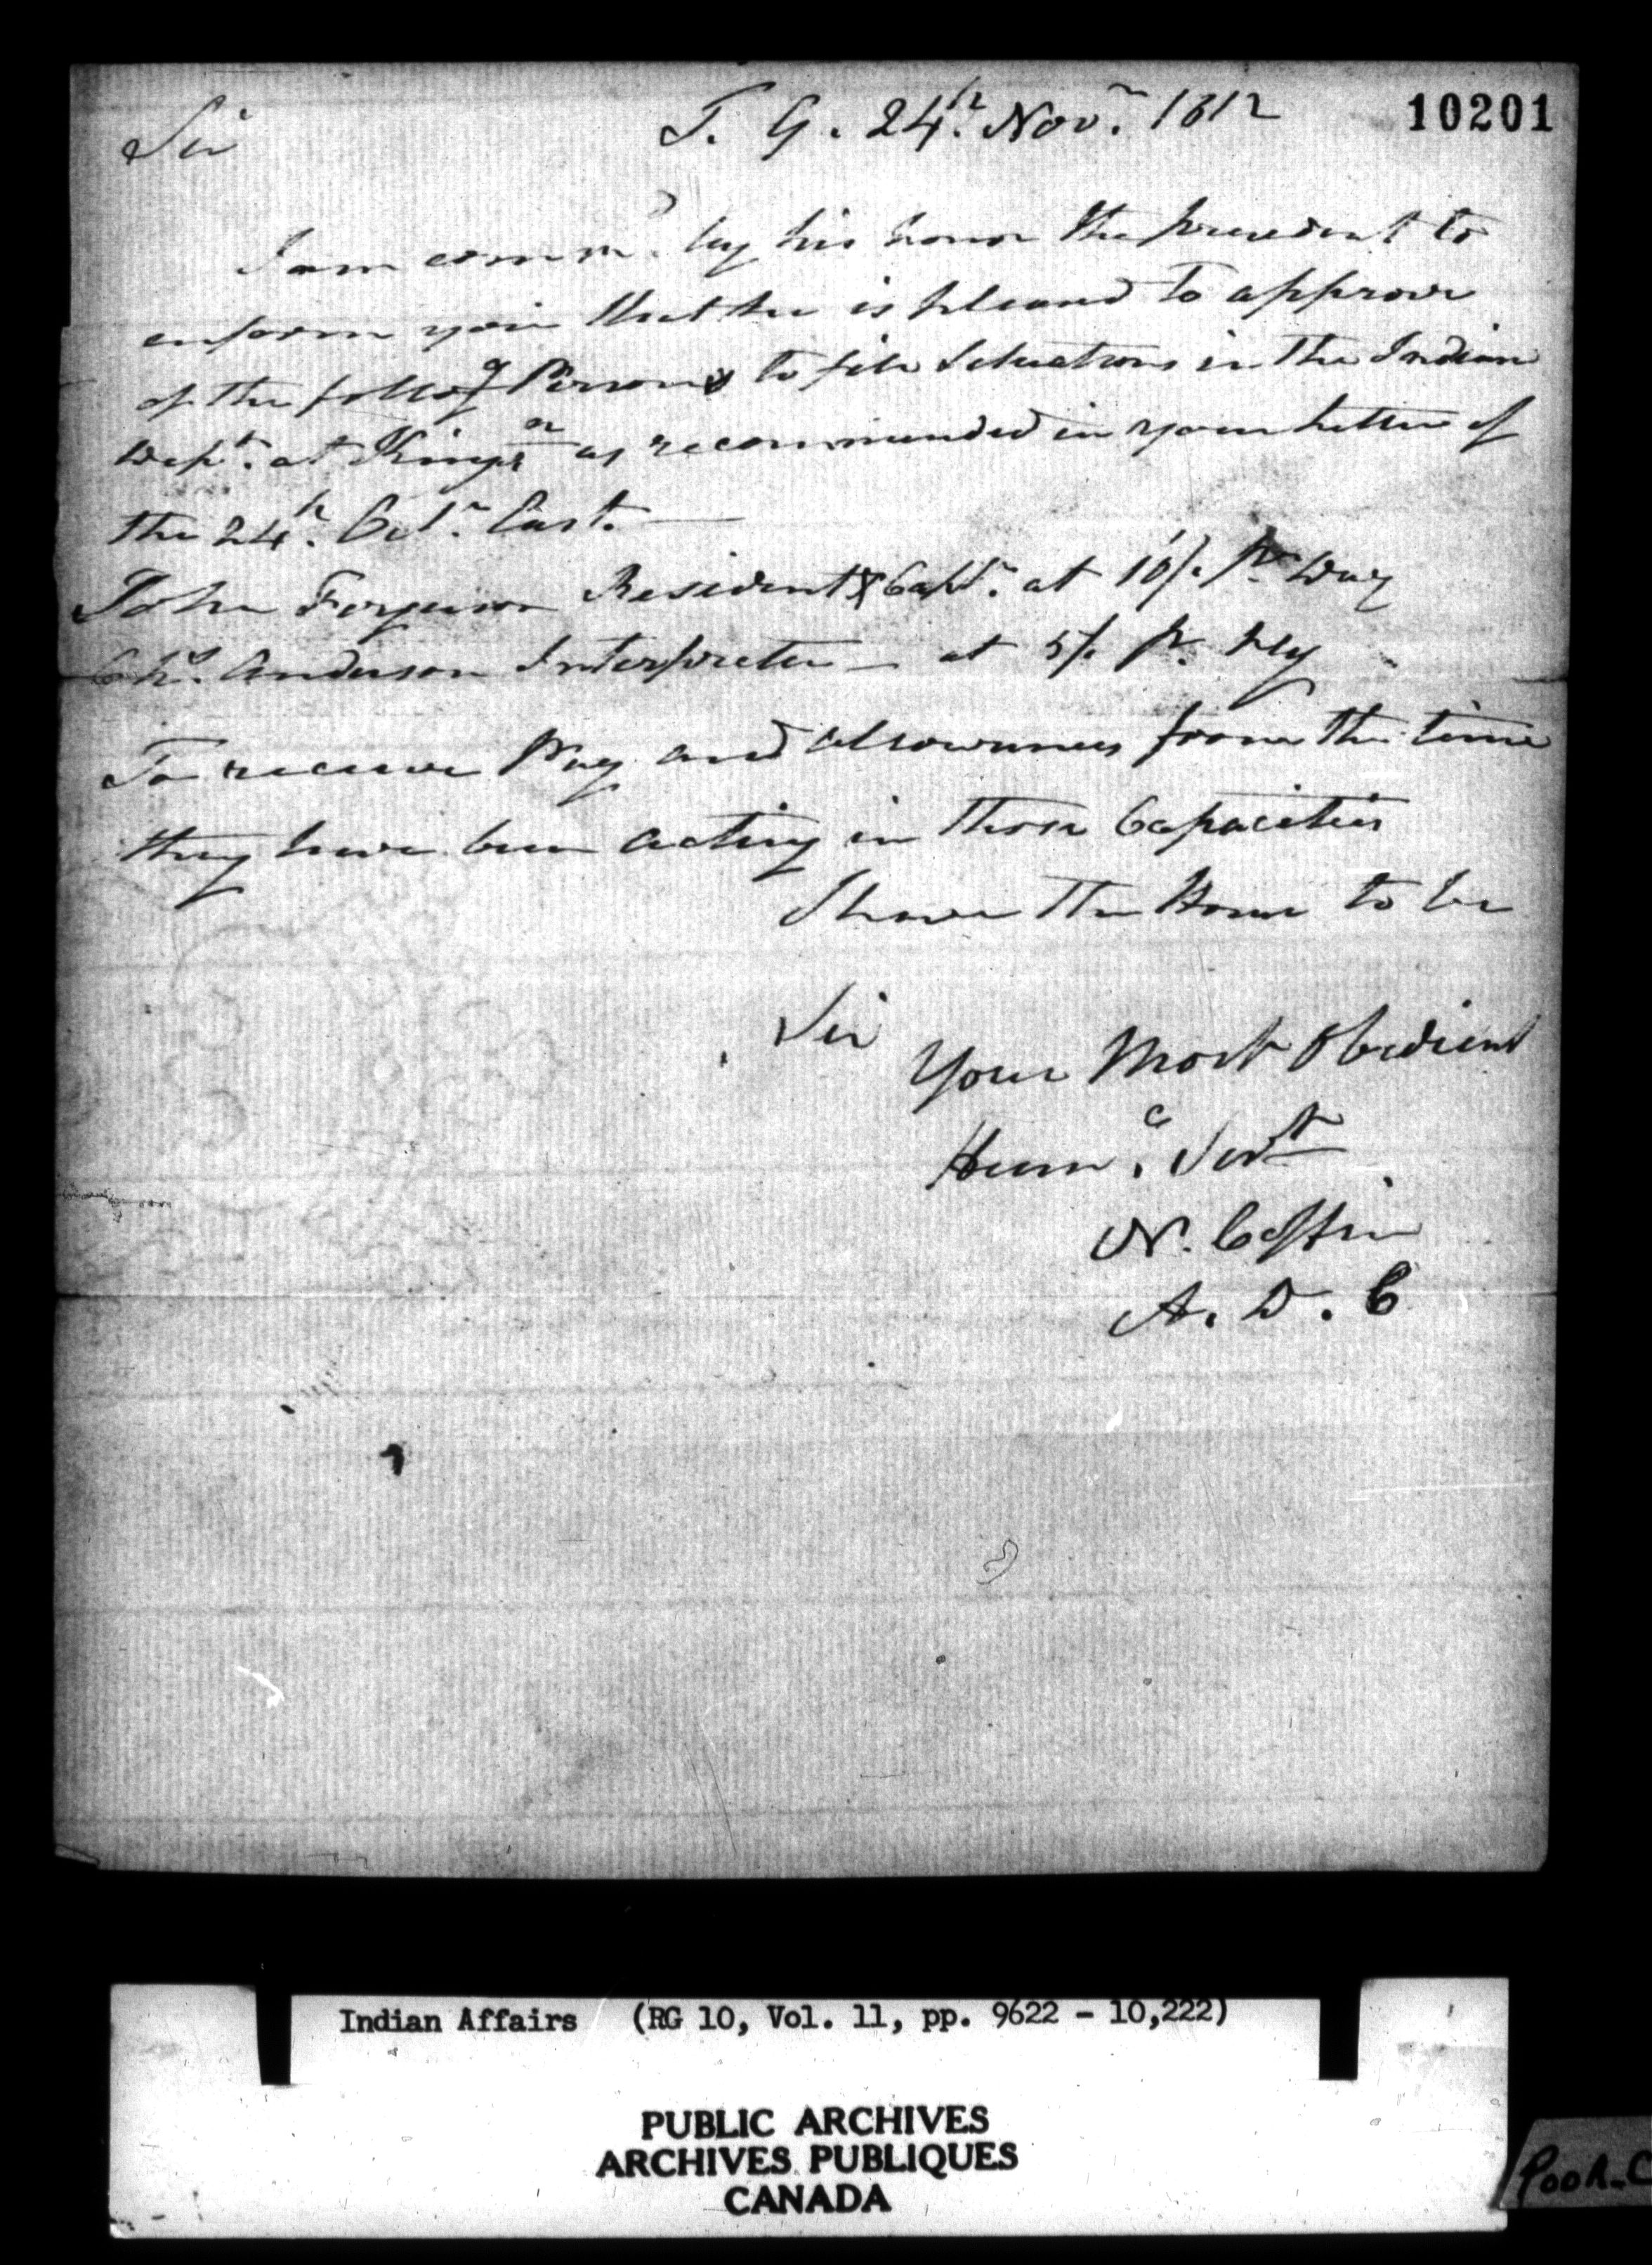 10201
Sir
F. G. 24th. Novr. 1812
I am comm.d by his honor the president to
inform you that he is pleased to approve
of the follog Persons to fill Situations in the Indian
Dept. at Kingsn as recommended in your letter of
the 24h. Octr. last.
John Ferguson Resident & Captn. at 10/. pr Day
Chs. Anderson Interpreter - at 5/. pr.
To receive Pay and allowances from the time
they have been acting in those Capacities
I have the Honor to be
Sir
Your Most Obedient
Hume. Servt
N. Coffin
A. D. C
Indian Affairs (RG 10, Vol. 11, pp. 9622 - 10,222)
PUBLIC ARCHIVES
ARCHIVES PUBLIQUES
CANADA